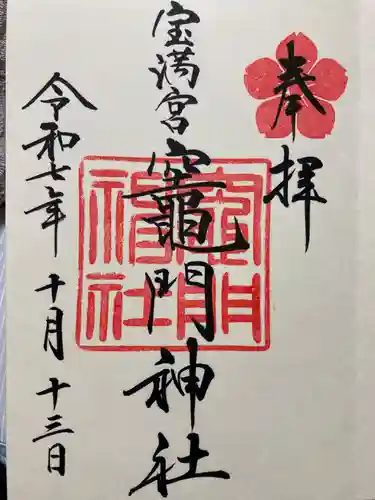 奉拝
宝満宮
竈門神社
令和七年 十月 十三日
竈門
神社